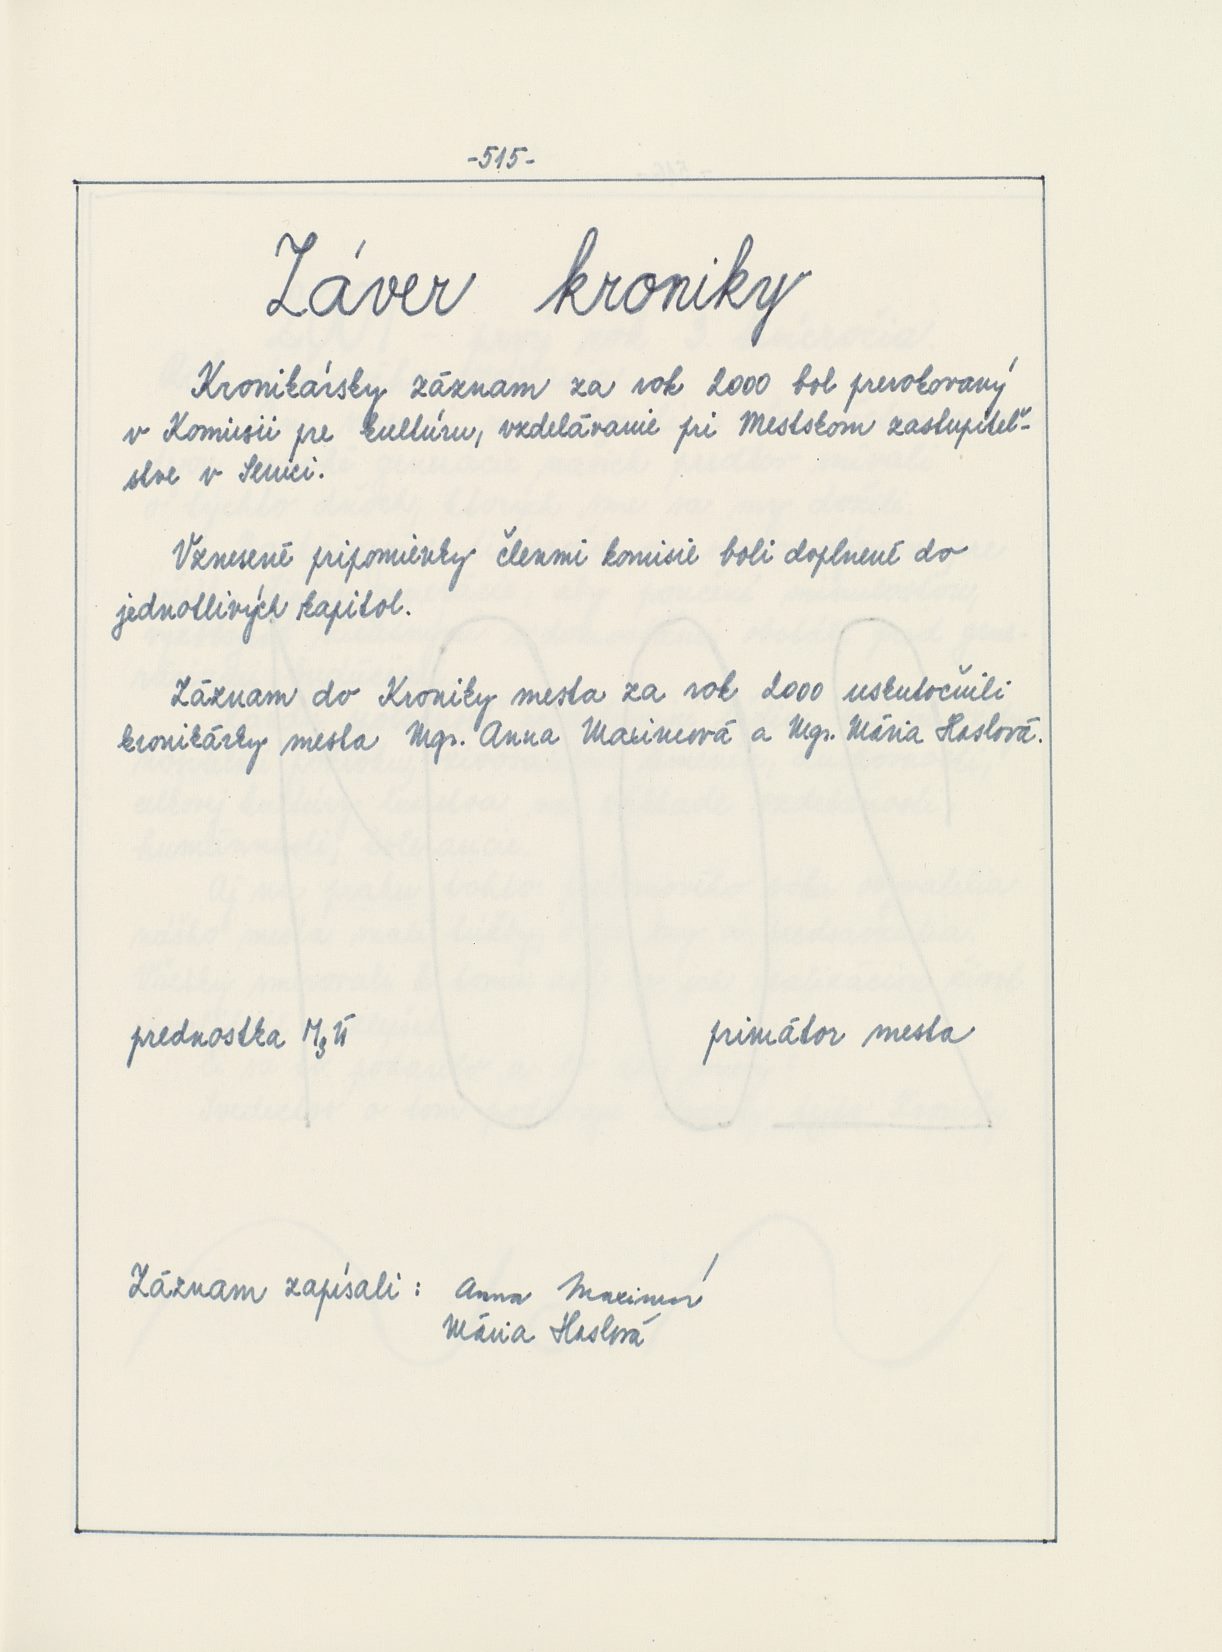 -515-
Záver kroniky
Kronikársky záznam za rok 2000 bol prerokovaný
v Komisii pre kultúru, vzdelávanie pri Mestskom zastupiteľ-
stve v Senici.
Vznesené pripomienky členmi komisie boli doplnené do
jednotlivých kapitol.
Záznam do Kroniky mesta za rok 2000 uskutočnili
kronikárky mesta Mgr. Anna Maximová a Mgr. Mária Haslová.
prednostka MsÚ primátor mesta
Záznam zapísali: Anna
Mária Haslová